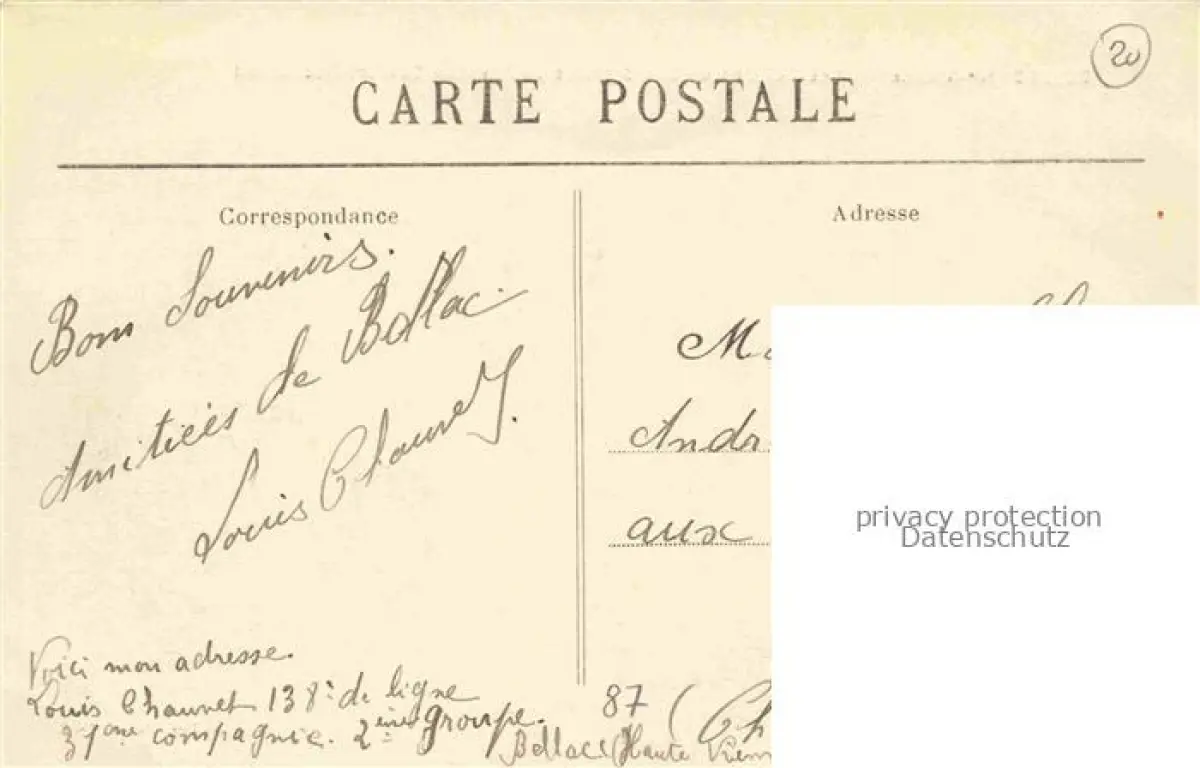 20
CARTE POSTALE
Correspondance
Bons Souvenirs.
Amitiées de Bellac.
Louis Chauvet.
Voici mon adresse.
Louis Chauvet 138e de ligne
31eme compagnie. 2ieme groupe.
Bellac (Haute Vienn
Adresse
M
Andr
aux
87 (Ch
privacy protection
Datenschutz